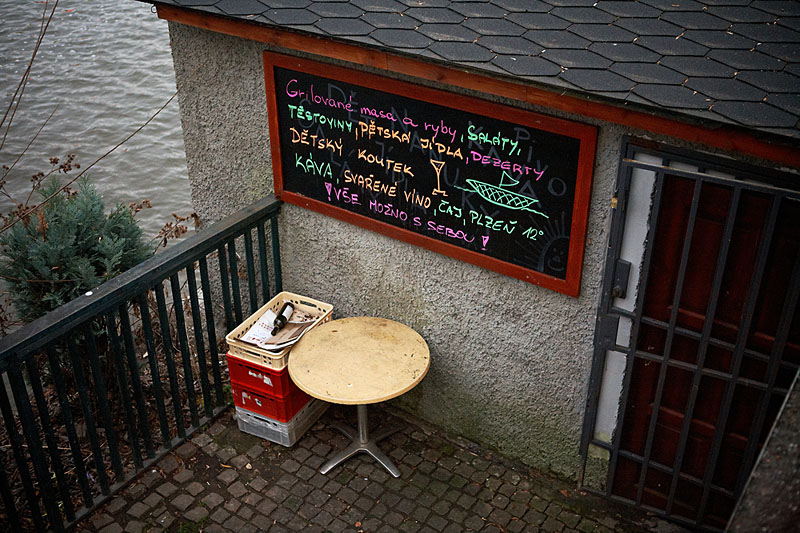 Grilované masa a ryby, SALÁTY,
TĚSTOVINY, DĚTSKÁ JÍDLA, DEZERTY
DĚTSKÝ KOUTEK
KÁVA, SVAŘENÉ VÍNO, ČAJ, PLZEŇ 12°
! VŠE MOŽNO S SEBOU !